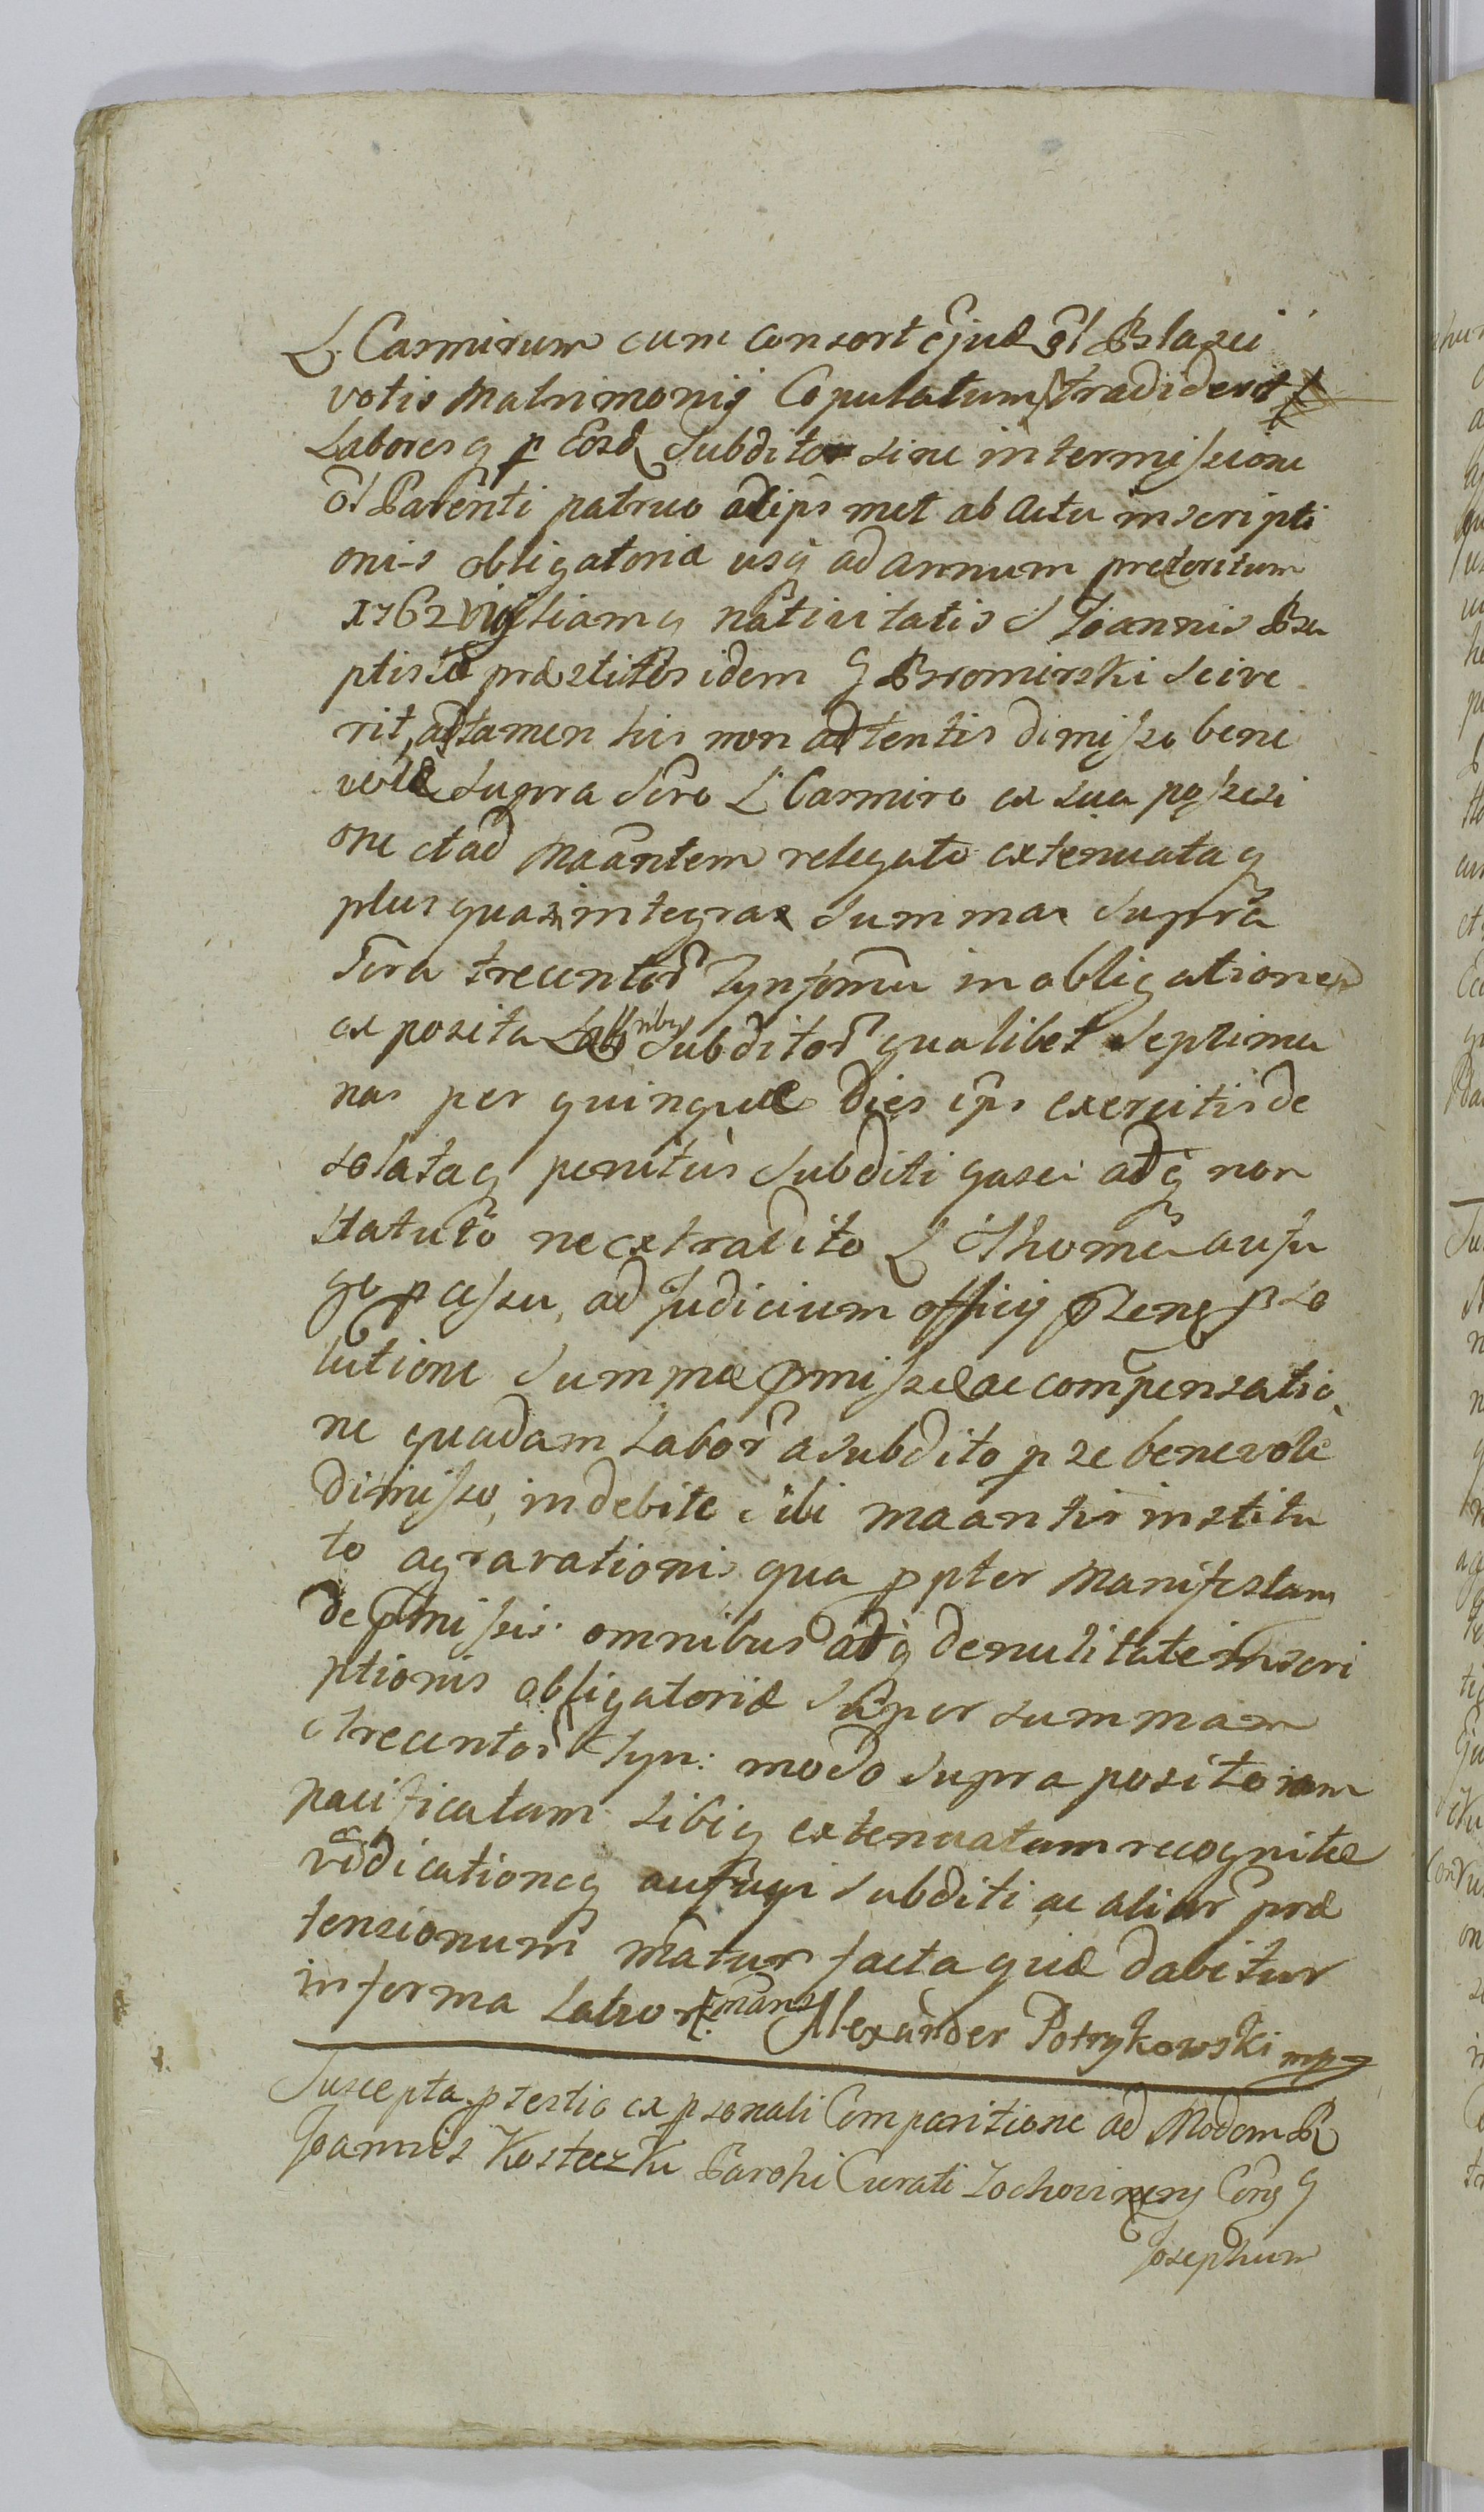 L. Casmirum cum consort ejusd ol Blasii
votis Matrimonij Copulatum tradiderit
Laboresq p Eosd Subditos sine intermissione
ol Parenti patruo ad ips met ab actu inscripti
onis obligatoriæ usq ad annum preteritum
1762 vigiliamq nativitatis S Joannis Ba
ptistæ præstitos idem G Bromirski scive
rit, adtamen his non adtentis dimisso bene
vole supra Scro L Casmiro ex sua possesi
one et ad Maantem relegato extenuataq
plus quam integra Summa Supra
Scra trecentor Tynfonu in obligatione
ex posita Labbribus Subditor qualibet Septima
nas per quinque dies ips exercitis de
solataq penitus Subditi gasa adq non
statuto nec extradito L Thoma aufu
ge p cessu, ad Judicium officij pstens pso
lutione Summæ pmissæ ac compensatio
ne quadam Labor a subdito p se benevole
dimisso, indebite sibi maantis institu
to agravationis qua ppter Manifestam
de pmissis omnibus adq de nulitate inscri
ptionis obligatoriæ Super summam
trecentor tyn: modo supra posito iam
pacificatam sibiq extenuatam recognitæ
vindicationeq aufugi Subditi ac aliar præ
tensionum matur facta quæ dabitur
in forma Latiori mans Alexander Potrykowski mpp
Suscepta ptestio ex psonali Comparitione ad Modem R
Joannis Kosteczki Parohi Curati Zochovinens Cons G
Josephum